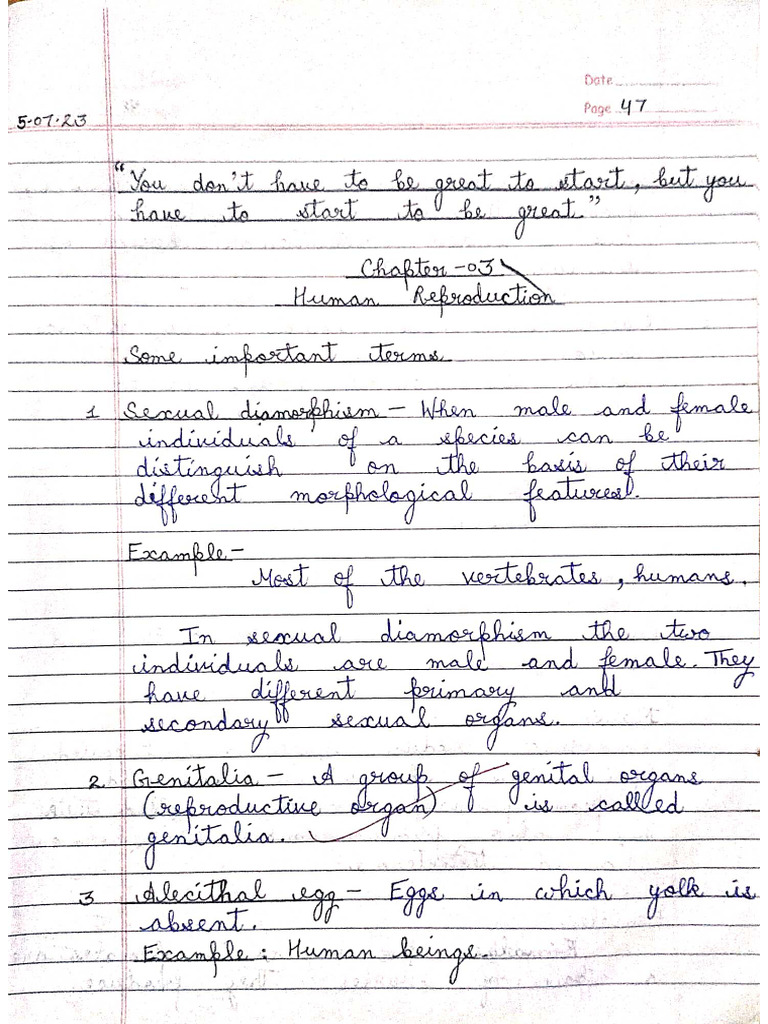 Date
Page 47
5.07.23
"You don't have to be great to start, but you
have to start to be great."
Chapter-03
Human Reproduction
Some important terms
1 Sexual diamorphism - When male and female
individuals of a species can be
distinguish on the basis of their
different morphological features.
Example -
Most of the vertebrates, humans.
In sexual diamorphism the two
individuals are male and female. They
have different primary and
secondary sexual organs.
2. Genitalia - A group of genital organs
(reproductive organ) is called
genitalia.
3 Alecithal egg - Eggs in which yolk is
absent.
Example: Human beings.